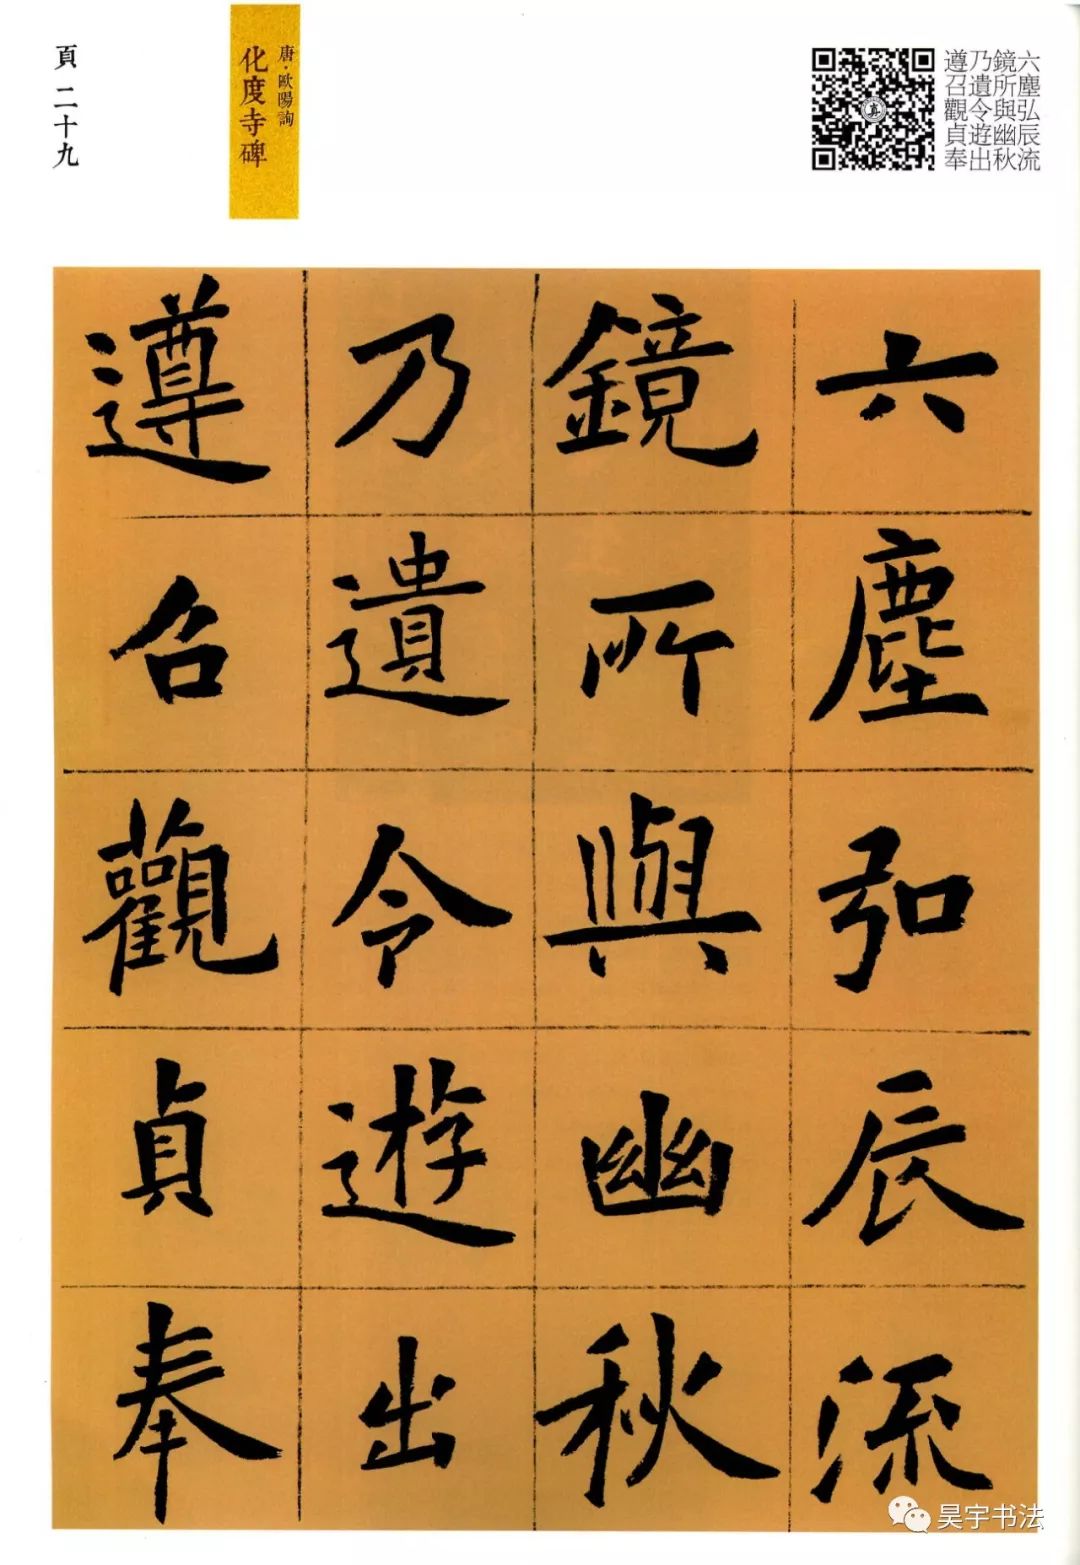 頁 二十九
唐·歐陽詢
化度寺碑
六塵弘辰流
鏡所與幽秋
乃遺令遊出
遵召觀貞奉
六塵弘辰流
鏡所與幽秋
乃遺令遊出
遵召觀貞奉
昊宇书法